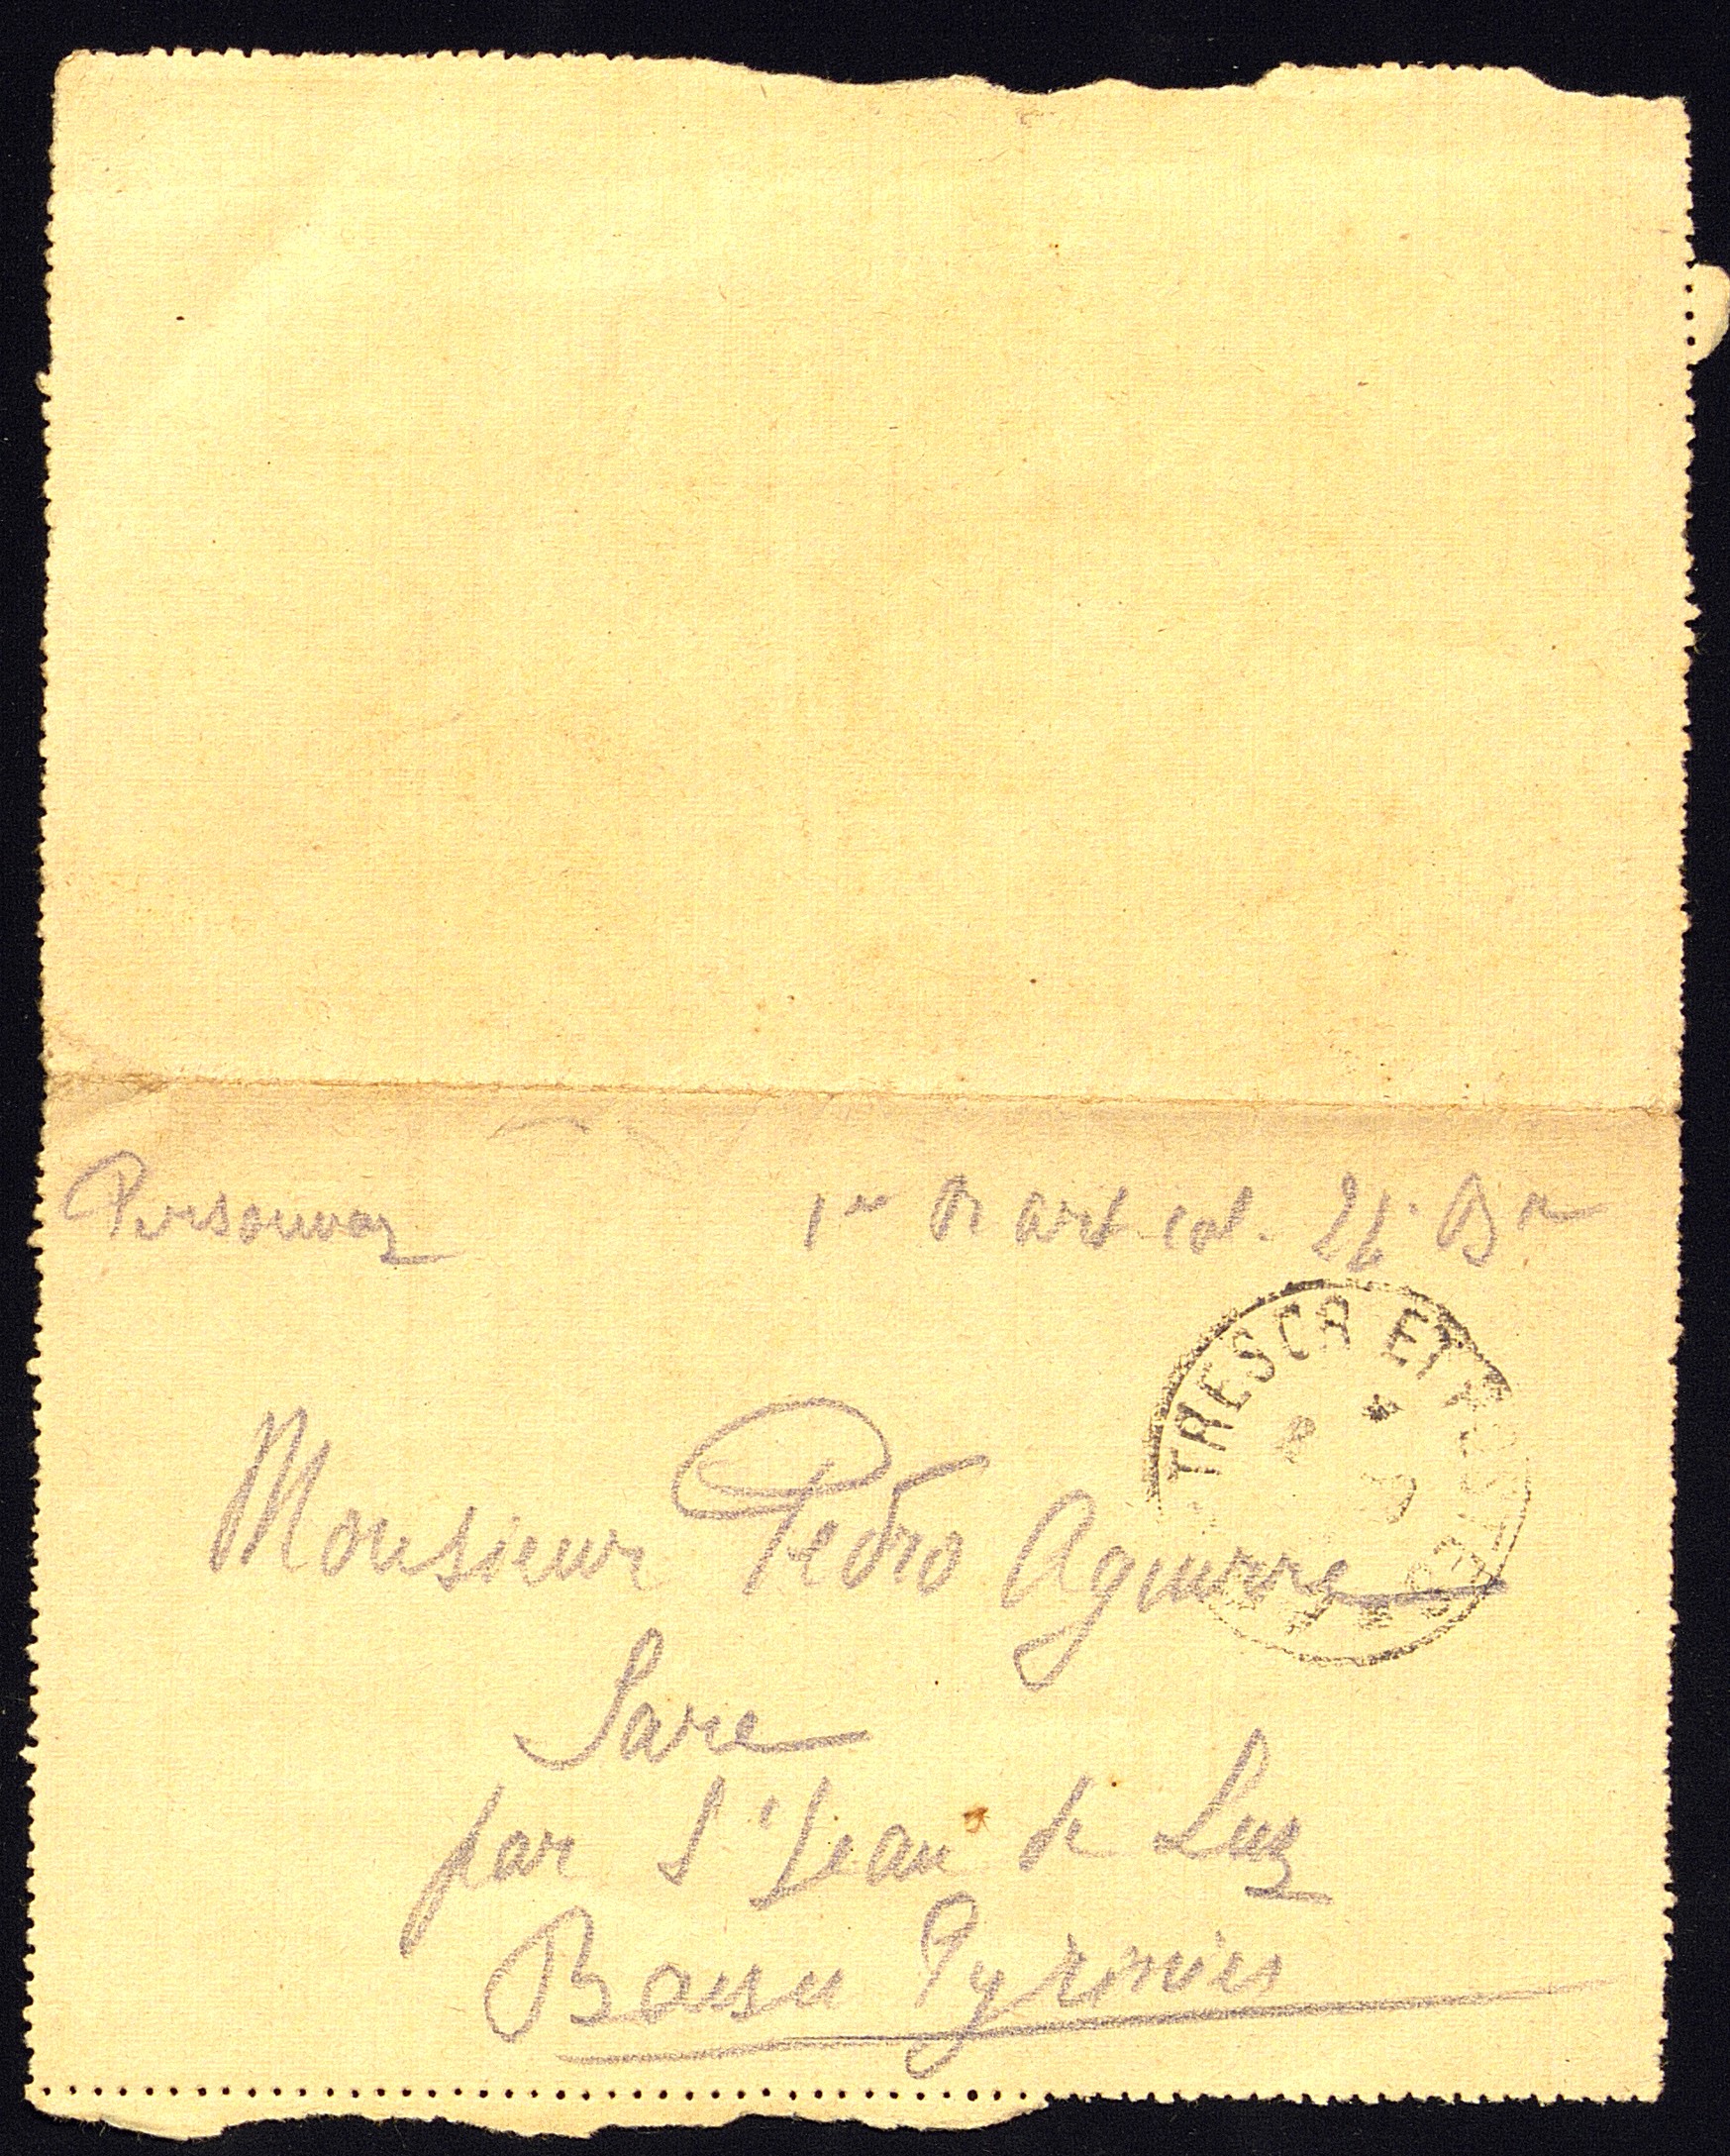 Personnaz 1er R art. col. 26e Bie
TRESOR ET POSTES
8 *
Monsieur Pedro Aguirre
Sare
par St Jean de Luz
Basses Pyrénées